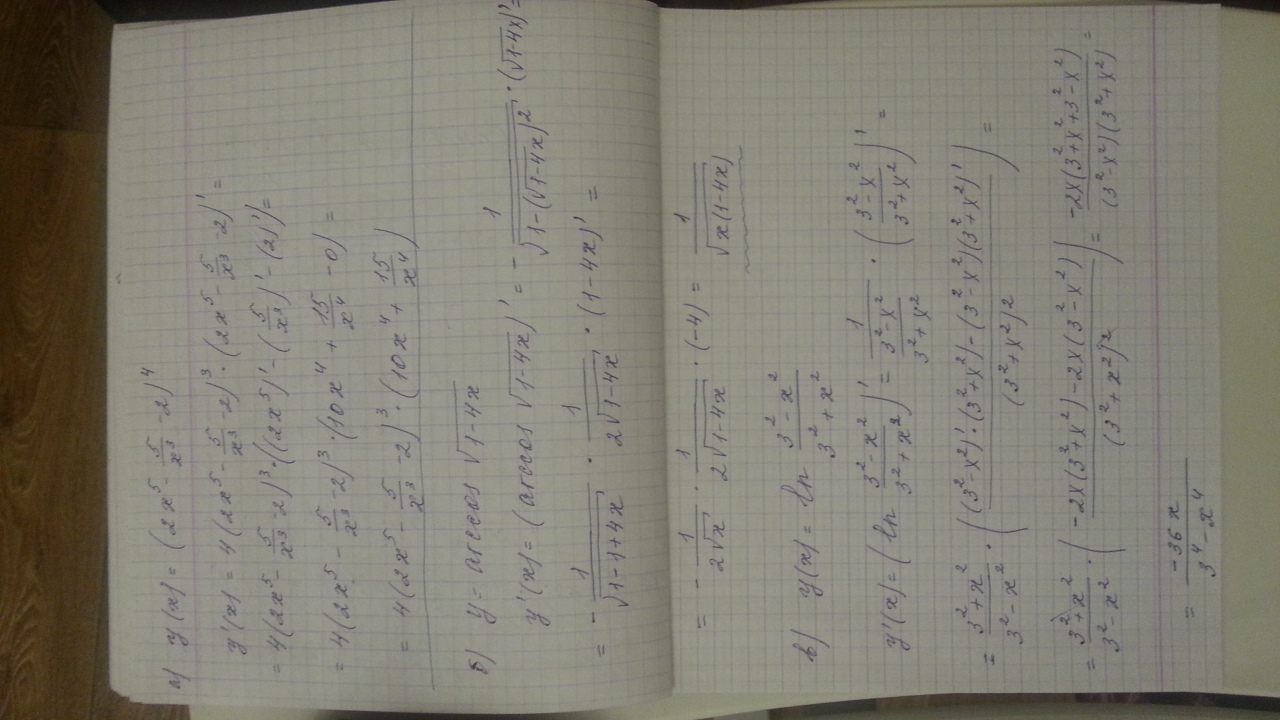 а) y(x) = (2x⁵ - 5/x³ - 2)⁴
y'(x) = 4(2x⁵ - 5/x³ - 2)³ · (2x⁵ - 5/x³ - 2)' =
= 4(2x⁵ - 5/x³ - 2)³ · ((2x⁵)' - (5/x³)' - (2)') =
= 4(2x⁵ - 5/x³ - 2)³ · (10x⁴ + 15/x⁴ - 0) =
= 4(2x⁵ - 5/x³ - 2)³ · (10x⁴ + 15/x⁴)
б) y = arccos √(1-4x)
y'(x) = (arccos √(1-4x))' = - 1/√(1-(√(1-4x))²) · (√(1-4x))' =
= - 1/√(1-1+4x) · 1/(2√(1-4x)) · (1-4x)' =
= - 1/(2√x) · 1/(2√(1-4x)) · (-4) = 1/√(x(1-4x))
в) y(x) = ln (3²-x²)/(3²+x²)
y'(x) = (ln (3²-x²)/(3²+x²))' = 1/((3²-x²)/(3²+x²)) · ((3²-x²)/(3²+x²))' =
= (3²+x²)/(3²-x²) · (((3²-x²)'·(3²+x²) - (3²-x²)(3²+x²)')/(3²+x²)²) =
= (3²+x²)/(3²-x²) · ((-2x(3²+x²) - 2x(3²-x²))/(3²+x²)²) = -2x(3²+x²+3²-x²)/((3²-x²)(3²+x²)) =
= -36x/(3⁴-x⁴)